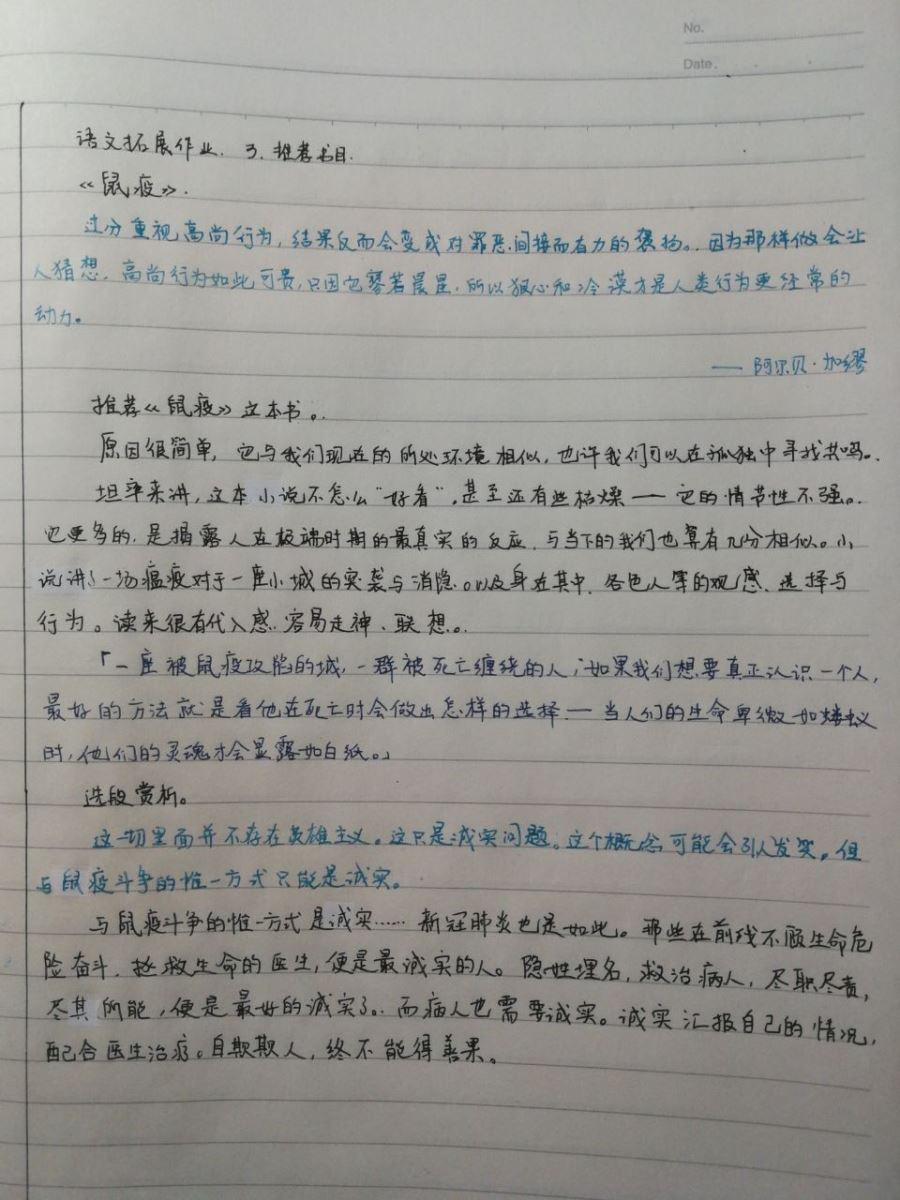 No.
Date.
语文拓展作业. 3. 推荐书目.
《鼠疫》.
过分重视高尚行为, 结果反而会变成对罪恶间接而有力的褒扬。因为那样做会让
人猜想, 高尚行为如此可贵, 只因它寥若晨星, 所以狠心和冷漠才是人类行为更经常的
动力。
—— 阿尔贝·加缪
推荐《鼠疫》这本书。
原因很简单, 它与我们现在的所处环境相似, 也许我们可以在孤独中寻找共鸣。
坦率来讲, 这本小说不怎么“好看”, 甚至还有些枯燥——它的情节性不强。
它更多的, 是揭露人在极端时期的最真实的反应, 与当下的我们也算有几分相似。小
说讲了一场瘟疫对于一座小城的突袭与消隐。以及身在其中, 各色人等的观感、选择与
行为。读来很有代入感, 容易走神、联想。
「一座被鼠疫攻陷的城, 一群被死亡缠绕的人; 如果我们想要真正认识一个人,
最好的方法就是看他在死亡时会做出怎样的选择——当人们的生命卑微如蝼蚁
时, 他们的灵魂才会显露如白纸。」
选段赏析。
这一切里面并不存在英雄主义。这只是诚实问题。这个概念可能会引人发笑, 但
与鼠疫斗争的惟一方式只能是诚实。
与鼠疫斗争的惟一方式是诚实…… 新冠肺炎也是如此。那些在前线不顾生命危
险奋斗, 拯救生命的医生, 便是最诚实的人。隐姓埋名, 救治病人, 尽职尽责,
尽其所能, 便是最好的诚实了。而病人也需要诚实。诚实汇报自己的情况,
配合医生治疗。自欺欺人, 终不能得善果。